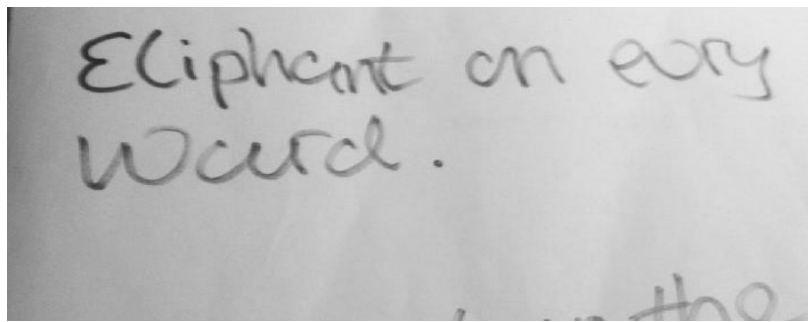 Eliphant on evry
Ward.
the